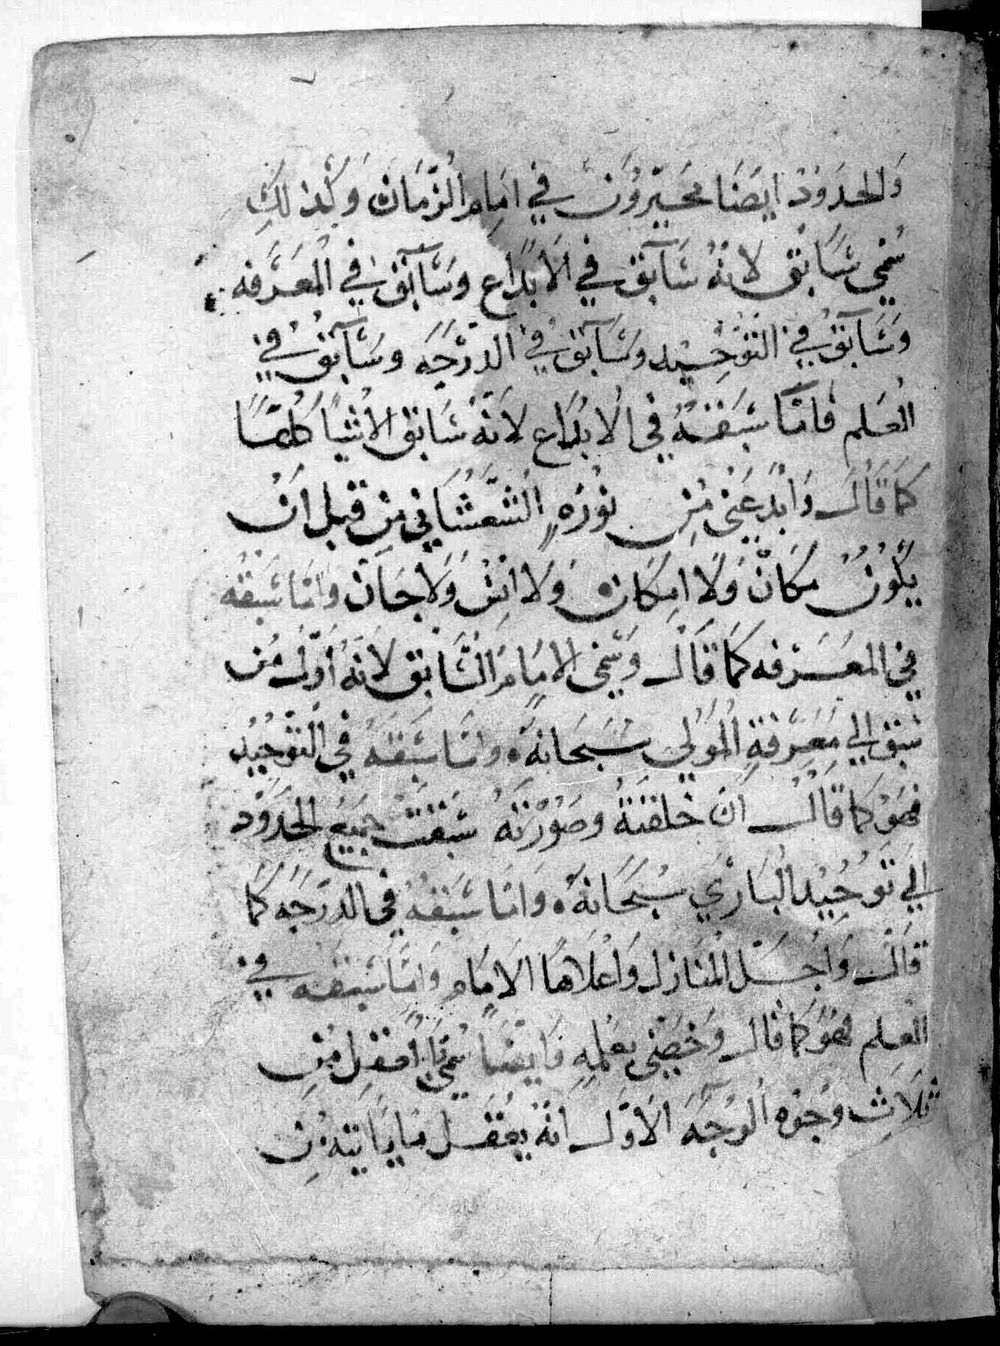 والحدود ايضا محيرون في امام الزمان وكذلك
سمي سابق لانه سابق في الابداع وسابق في المعرفه
وسابق في التوحيد وسابق في الدرجه وسابق في
العلم فاما سبقه في الابداع لانه سابق الاشيا كلها
كما قال وابدعني من نوره الشعشعاني من قبل ان
يكون مكان ولا امكان ولا انس ولا جان واما سبقه
في المعرفه كما قال وسمي الامام السابق لانه اول من
سبق الي معرفة المولي سبحانه واما سبقه في التوحيد
فهو كما قال ان خلقته وصورته سبقت جميع الحدود
الي توحيد الباري سبحانه واما سبقه في الدرجه كما
قال واجل المنازل واعلاها الامام واما سبقه في
العلم فهو كما قال وخصني بعلمه وايضا سمي ثلاث وجوه الوجه الاول انه يعقل